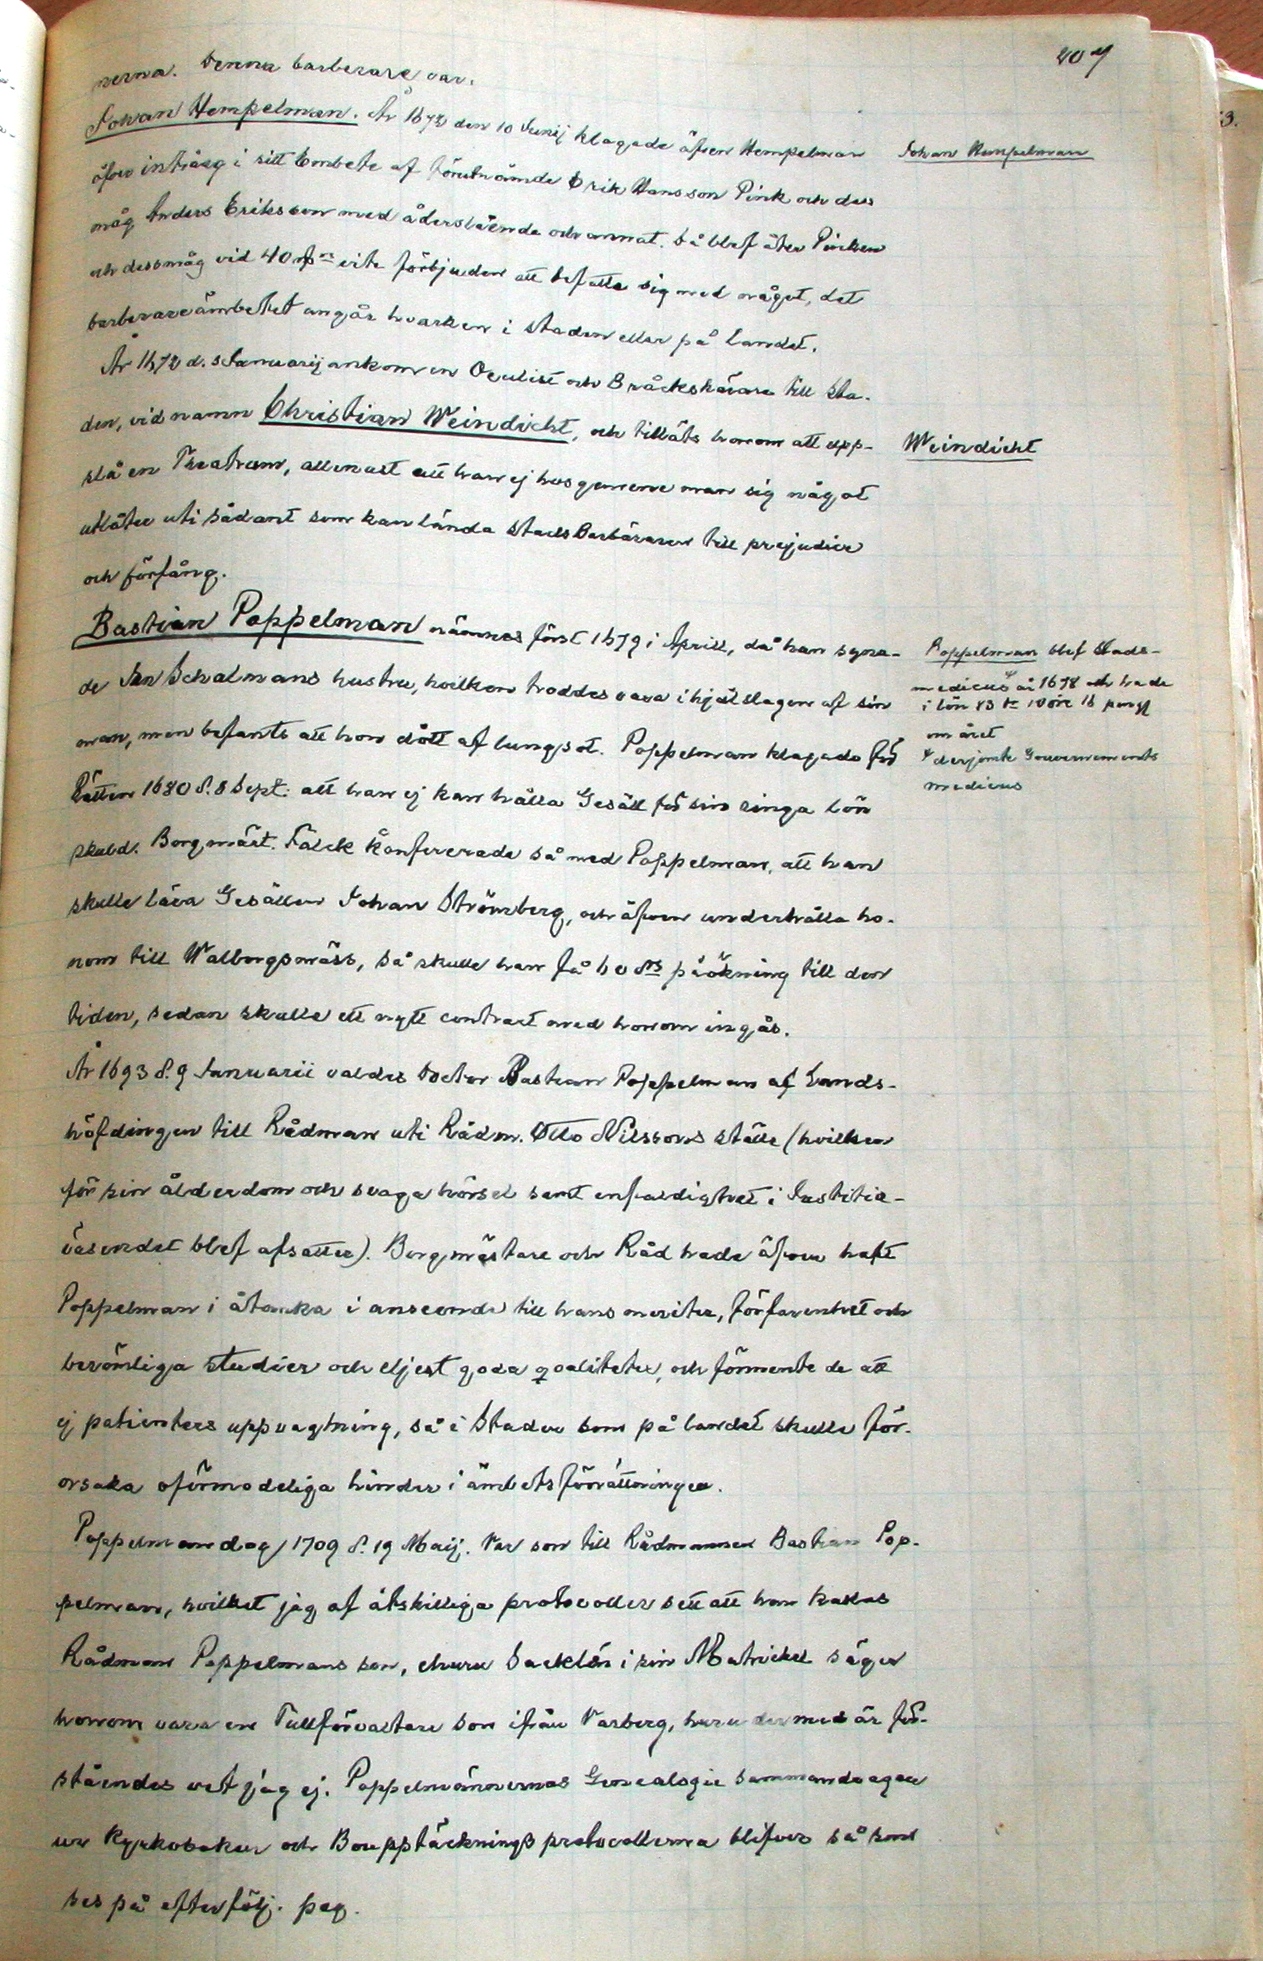 207
nerna. Denna barberare var.
Johan Hempelman. År 1672 den 10 Junij klagade äfven Hempelman
Johan Hempelman
öfver intrång i sitt Embete af förutnämde Erik Hansson Pink och des
måg Anders Eriksson med åderslående och annat. Då blef åter Pincken
och dess måg vid 40 vite förbjuden att befatta sig med något, det
barberareämbetet angår hvarken i staden eller på landet.
År 1672 d. 5 Januarij ankom en Oculist och Bråckskärare till sta-
den, vid namn Christian Weindicht, och tilläts honom att upp-
Weindicht
slå en Theatrum, allenast att han ej hos gemene man sig något
utlåter uti sådant som kan lända stads Barberaren till prejudice
och förfång.
Bastian Poppelman nämnes först 1679 i Aprill, då han syna-
Poppelman blef Stads-
de Jan Schalmans hustru, hvilken troddes vara ihjälslagen af sin
medicus år 1678 och hade
i lön 83 10 öre 16 peng
man, men befants att hon dött af lungsot. Poppelman klagade för
om året
derjemte Gouvernements
medicus
Rätten 1680 d. 8 Sept: att han ej kan hålla Gesäll för sin ringa lön
skuld. Borgmäst. Falck konfererade så med Poppelman, att han
skulle lära Gesällen Johan Strömberg, och äfven underhålla ho-
nom till Walborgsmäss, så skulle han få påökning till den
tiden, sedan skulle ett nytt contract med honom ingås.
År 1693 d. 9 Januarii valdes Doctor Bastian Poppelman af Lands-
höfdingen till Rådman uti Rådm. Otto Nilssons ställe (hvilken
för sin ålderdom och svaga hörsel samt enfaldighet i Justitie-
väsendet blef afsatter). Borgmästare och Råd hade äfven haft
Poppelman i åtanka i anseende till hans meriter, förfarenhet och
berömliga studier och eljest goda qvaliteter, och förmente de att
ej patienters uppvagtning, så i Staden som på landet skulle för-
orsaka oförmodeliga hinder i ämbetsförrättningen.
Poppelman dog 1709 d. 19 Maij. Var son till Rådmannen Bastian Pop-
pelman, hvilket jag af åtskilliga protocoller sett att han kallas
Rådman Poppelmans son, churu Sacklén i sin Matrickel säger
honom vara en Tullförvaltare son ifrån Varberg, huru dermed är för-
ståendes vet jag ej. Poppelmännernas Genealogie sammandragen
ur Kyrkoboken och Bouppteckningsprotocollerna blifver så som
ses på efterfölj. pag.